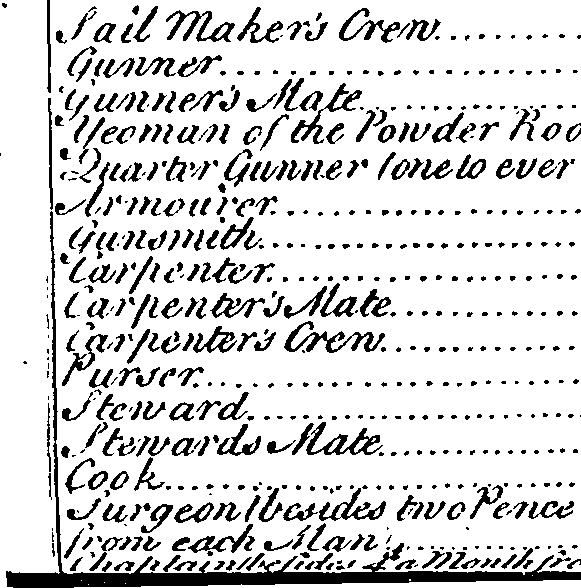 Sail Maker's Crew..........
Gunner......................
Gunner's Mate..............
Yeoman of the Powder Roo
Quarter Gunner (one to ever
Armourer....................
Gunsmith....................
Carpenter...................
Carpenter's Mate...........
Carpenter's Crew...........
Purser......................
Steward.....................
Stewards Mate..............
Cook........................
Surgeon (besides two Pence
from each Man)............
Chaplain (besides 4d a Month fro